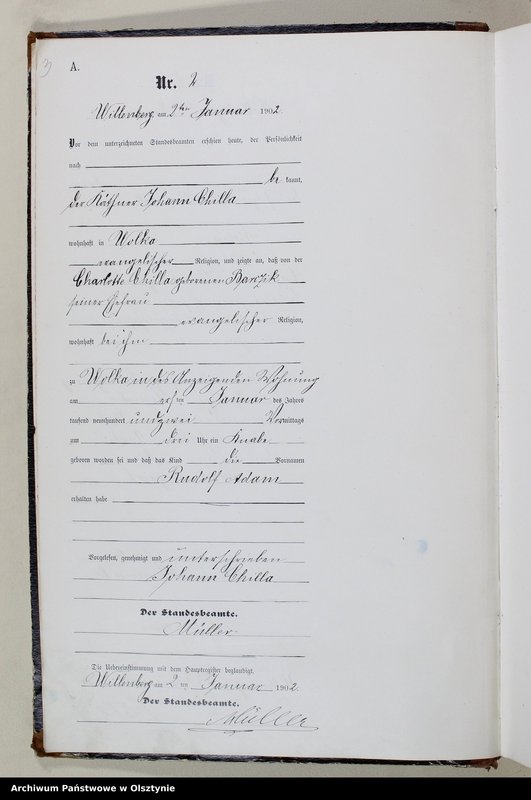 3
A.
Nr. 2
Willenberg am 2ten Januar 1902.
Vor dem unterzeichneten Standesbeamten erschien heute, der Persönlichkeit
nach
be kannt,
der Käthner Johann Chilla
wohnhaft in Wolka
evangelischer Religion, und zeigte an, daß von der
Charlotte Chilla geborenen Barzik
seiner Ehefrau
evangelischer Religion,
wohnhaft bei ihm
zu Wolka in des Anzeigenden Wohnung
am ersten Januar des Jahres
tausend neunhundert und zwei Vormittags
um drei Uhr ein Knabe
geboren worden sei und daß das Kind die Vornamen
Rudolf Adam
erhalten habe
Vorgelesen, genehmigt und unterschrieben
Johann Chilla
Der Standesbeamte.
Müller
Die Uebereinstimmung mit dem Hauptregister beglaubigt.
Willenberg am 2 ten Januar 1902.
Der Standesbeamte.
Müller
Archiwum Państwowe w Olsztynie